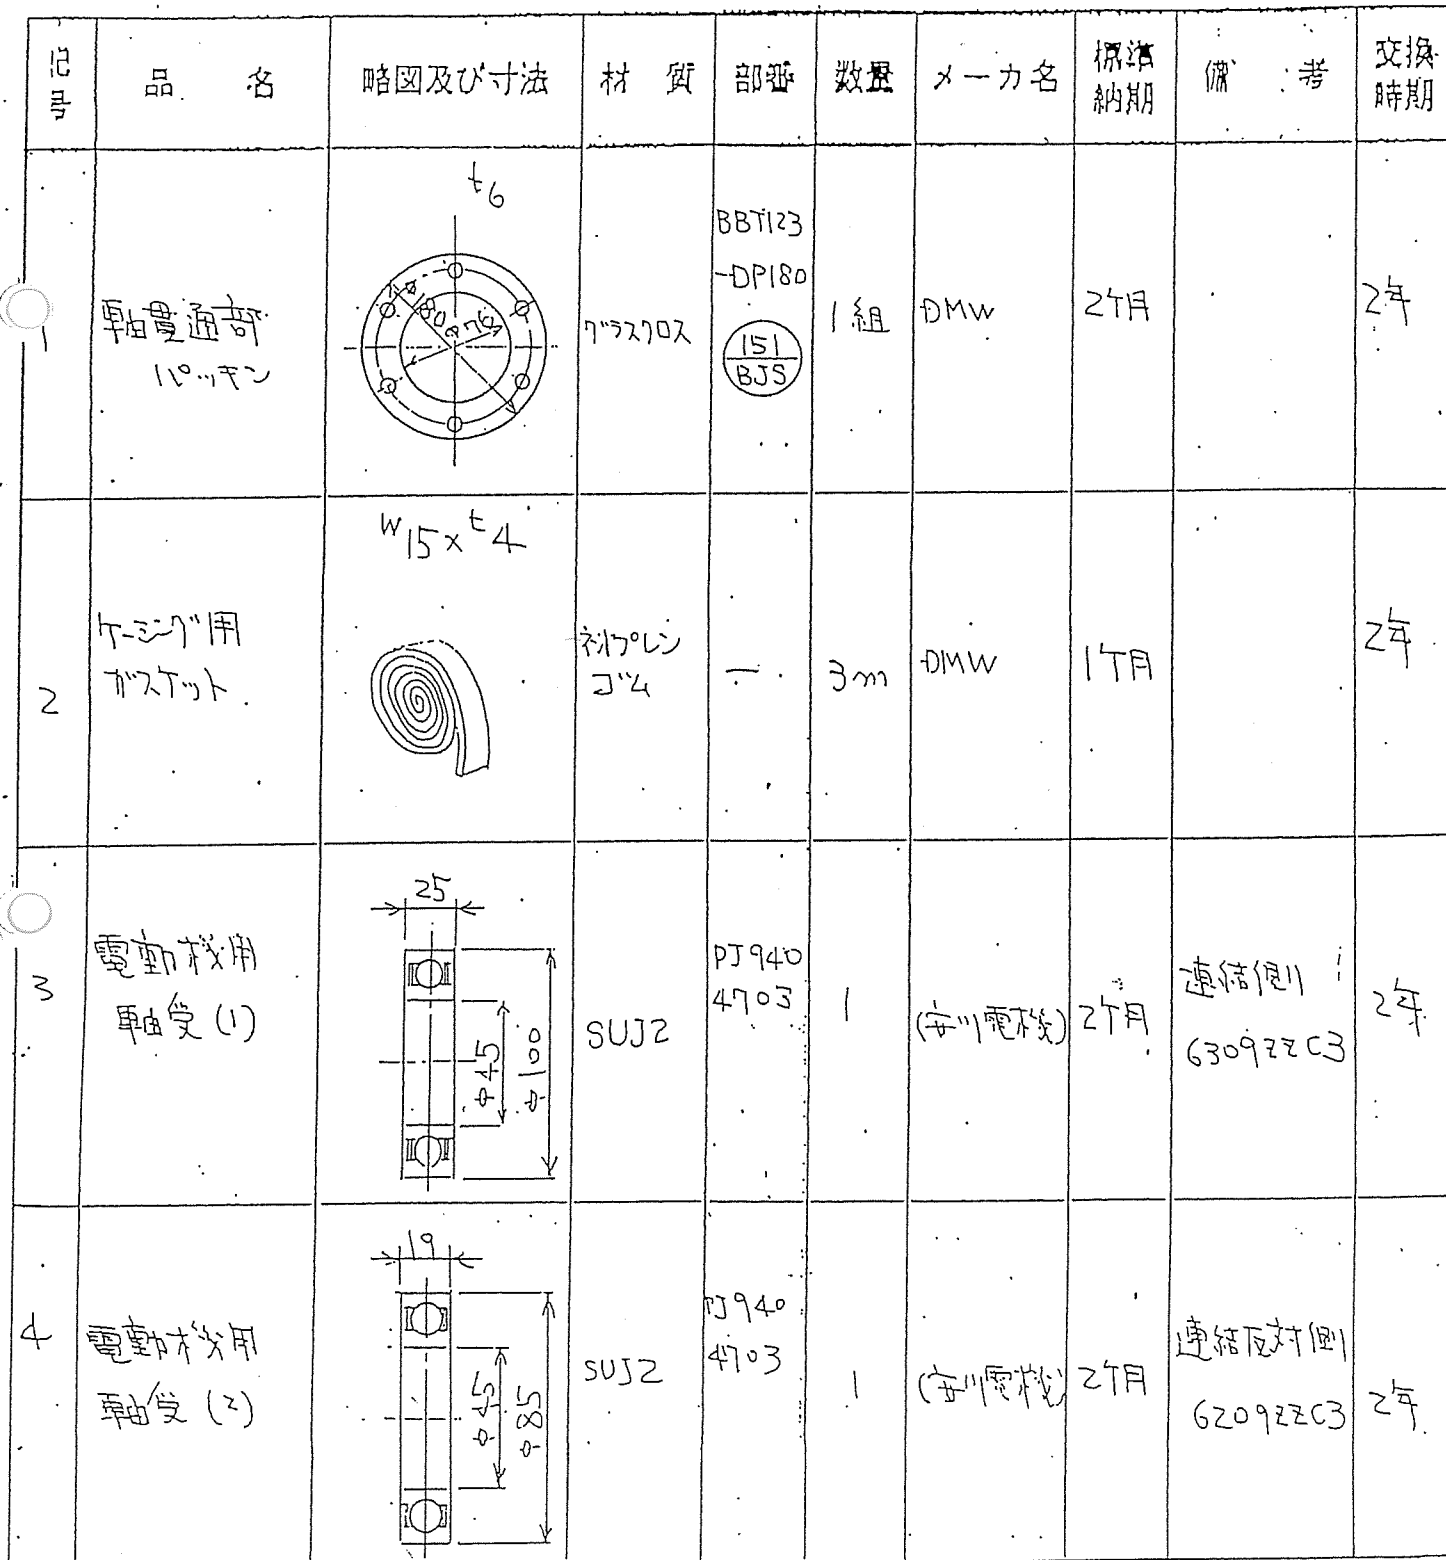 記号
品 名
略図及び寸法
材 質
部番
数量
メーカ名
標準
納期
備 考
交換
時期
1
軸貫通部
パッキン
t6
φ180
φ76
グラスクロス
BBT123
-DP180
151
BJS
1組
DMW
2ケ月
2年
2
ケーシング用
ガスケット
W15×t4
ネオプレン
ゴム
—
3m
DMW
1ケ月
2年
3
電動機用
軸受(1)
25
φ45
φ100
SUJ2
PJ940
4703
1
(安川電機)
2ケ月
連結側
6309ZZC3
2年
4
電動機用
軸受(2)
19
φ45
φ85
SUJ2
PJ940
4703
1
(安川電機)
2ケ月
連結反対側
6209ZZC3
2年